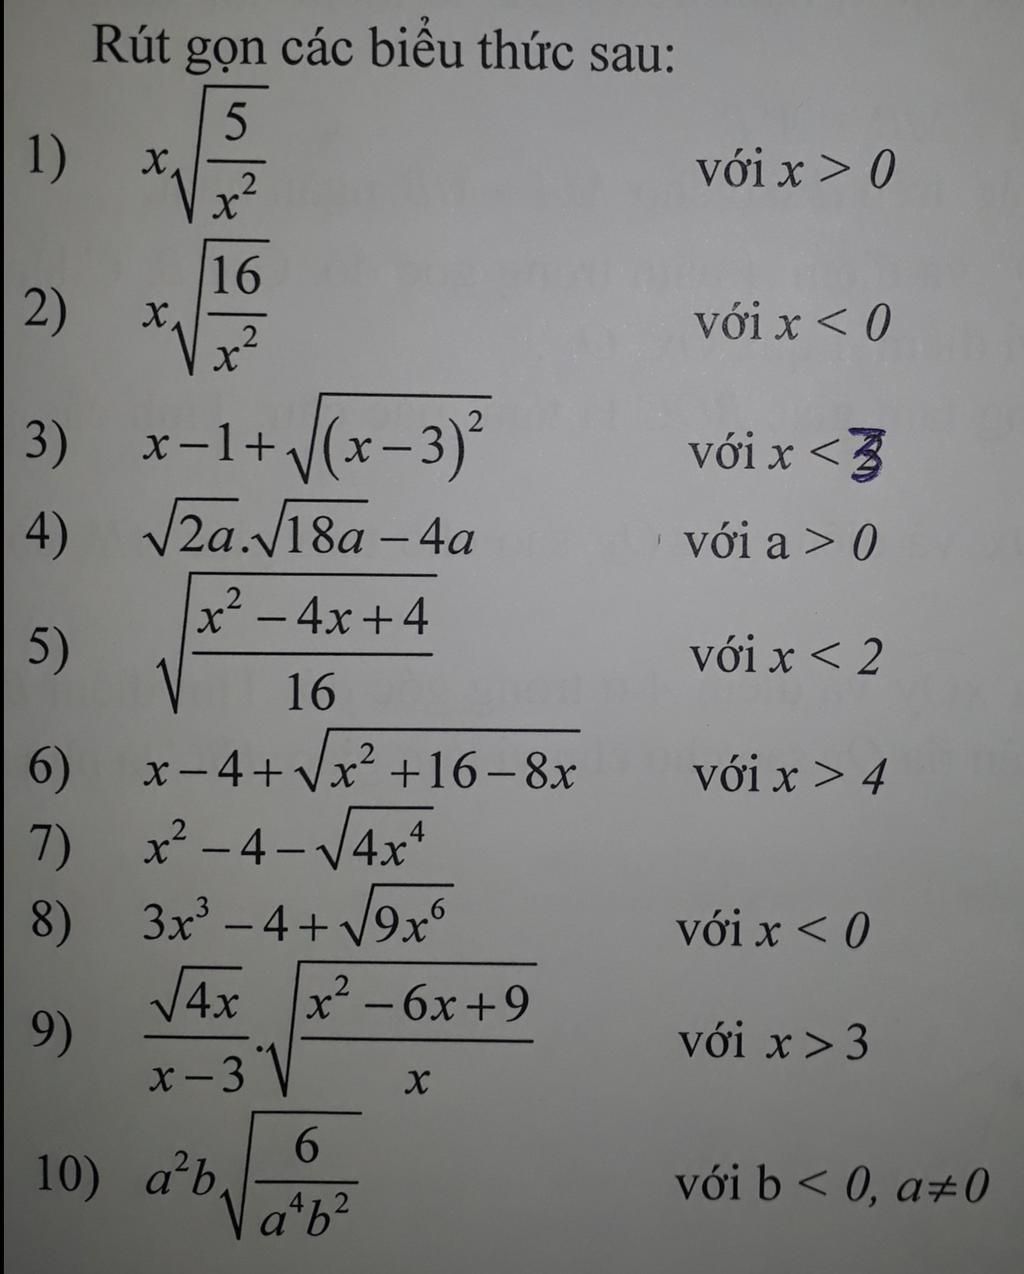 Rút gọn các biểu thức sau:
1) x√(5/x²) với x > 0
2) x√(16/x²) với x < 0
3) x−1+√((x−3)²) với x < 3
4) √(2a).√(18a) − 4a với a > 0
5) √((x² − 4x + 4)/16) với x < 2
6) x − 4 + √(x² + 16 − 8x) với x > 4
7) x² − 4 − √(4x⁴)
8) 3x³ − 4 + √(9x⁶) với x < 0
9) √(4x)/(x − 3) . √((x² − 6x + 9)/x) với x > 3
10) a²b√(6/(a⁴b²)) với b < 0, a≠0